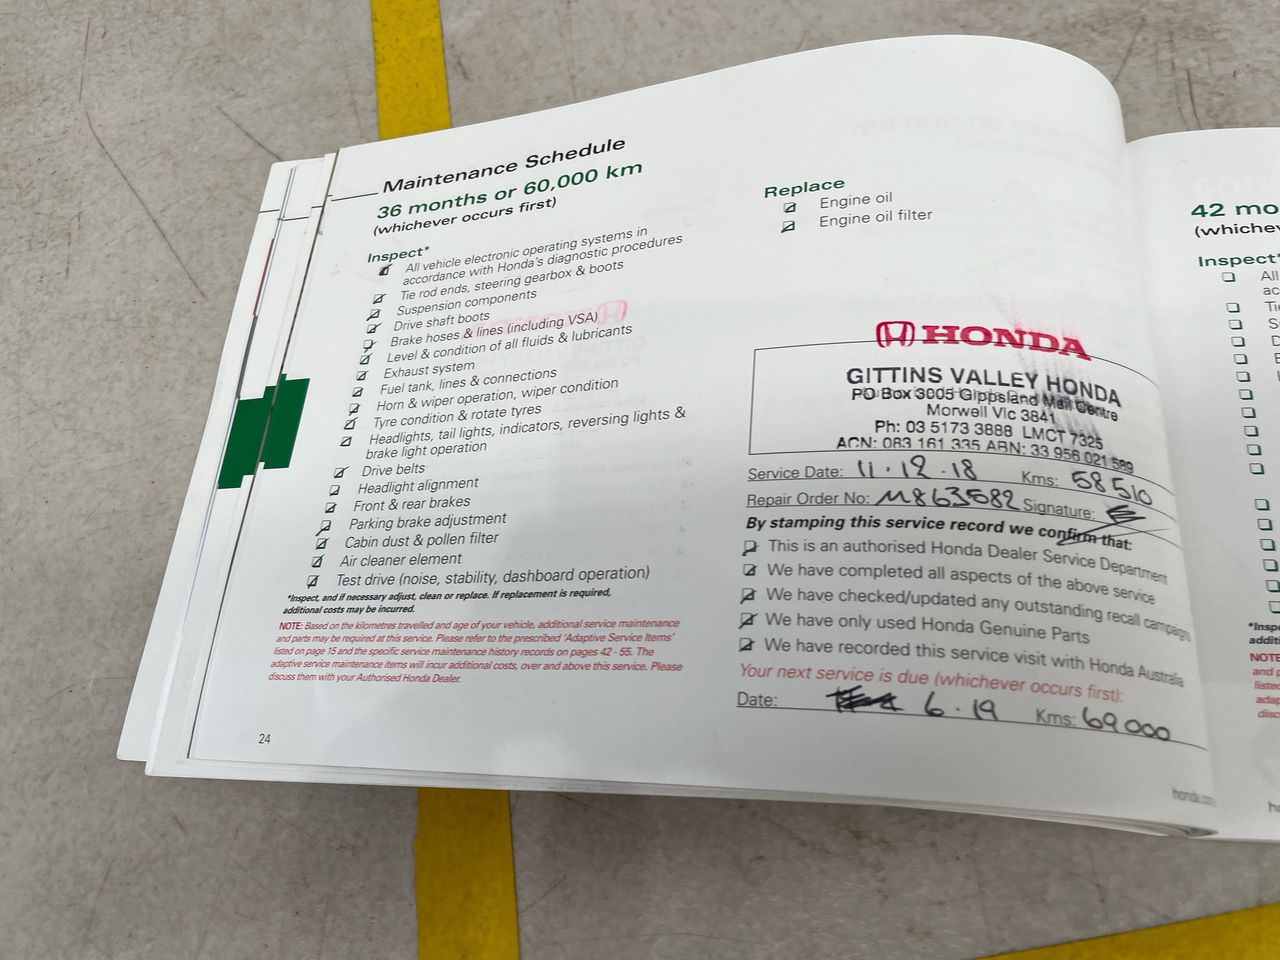 Maintenance Schedule
36 months or 60,000 km
(whichever occurs first)
Inspect*
All vehicle electronic operating systems in
accordance with Honda's diagnostic procedures
Tie rod ends, steering gearbox & boots
Suspension components
Drive shaft boots
Brake hoses & lines (including VSA)
Level & condition of all fluids & lubricants
Exhaust system
Fuel tank, lines & connections
Horn & wiper operation, wiper condition
Tyre condition & rotate tyres
Headlights, tail lights, indicators, reversing lights &
brake light operation
Drive belts
Headlight alignment
Front & rear brakes
Parking brake adjustment
Cabin dust & pollen filter
Air cleaner element
Test drive (noise, stability, dashboard operation)
*Inspect, and if necessary adjust, clean or replace. If replacement is required,
additional costs may be incurred.
NOTE: Based on the kilometres travelled and age of your vehicle, additional service maintenance
and parts may be required at this service. Please refer to the prescribed 'Adaptive Service Items'
listed on page 15 and the specific service maintenance history records on pages 42 - 55. The
adaptive service maintenance items will incur additional costs, over and above this service. Please
discuss them with your Authorised Honda Dealer.
24
Replace
Engine oil
Engine oil filter
HONDA
GITTINS VALLEY HONDA
PO Box 3005 Gippsland Mail Centre
Morwell Vic 3841
Ph: 03 5173 3888 LMCT 7325
ACN: 083 161 335 ABN: 33 956 021 589
Service Date: 11.12.18 Kms: 58510
Repair Order No: M863582 Signature:
By stamping this service record we confirm that:
This is an authorised Honda Dealer Service Department
We have completed all aspects of the above service
We have checked/updated any outstanding recall campaigns
We have only used Honda Genuine Parts
We have recorded this service visit with Honda Australia
Your next service is due (whichever occurs first):
Date: 6.19 Kms: 69000
42 mo
(whichev
Inspect*
All
ac
Ti
S
D
*Inspe
additi
NOTE
and p
listed
adap
disc